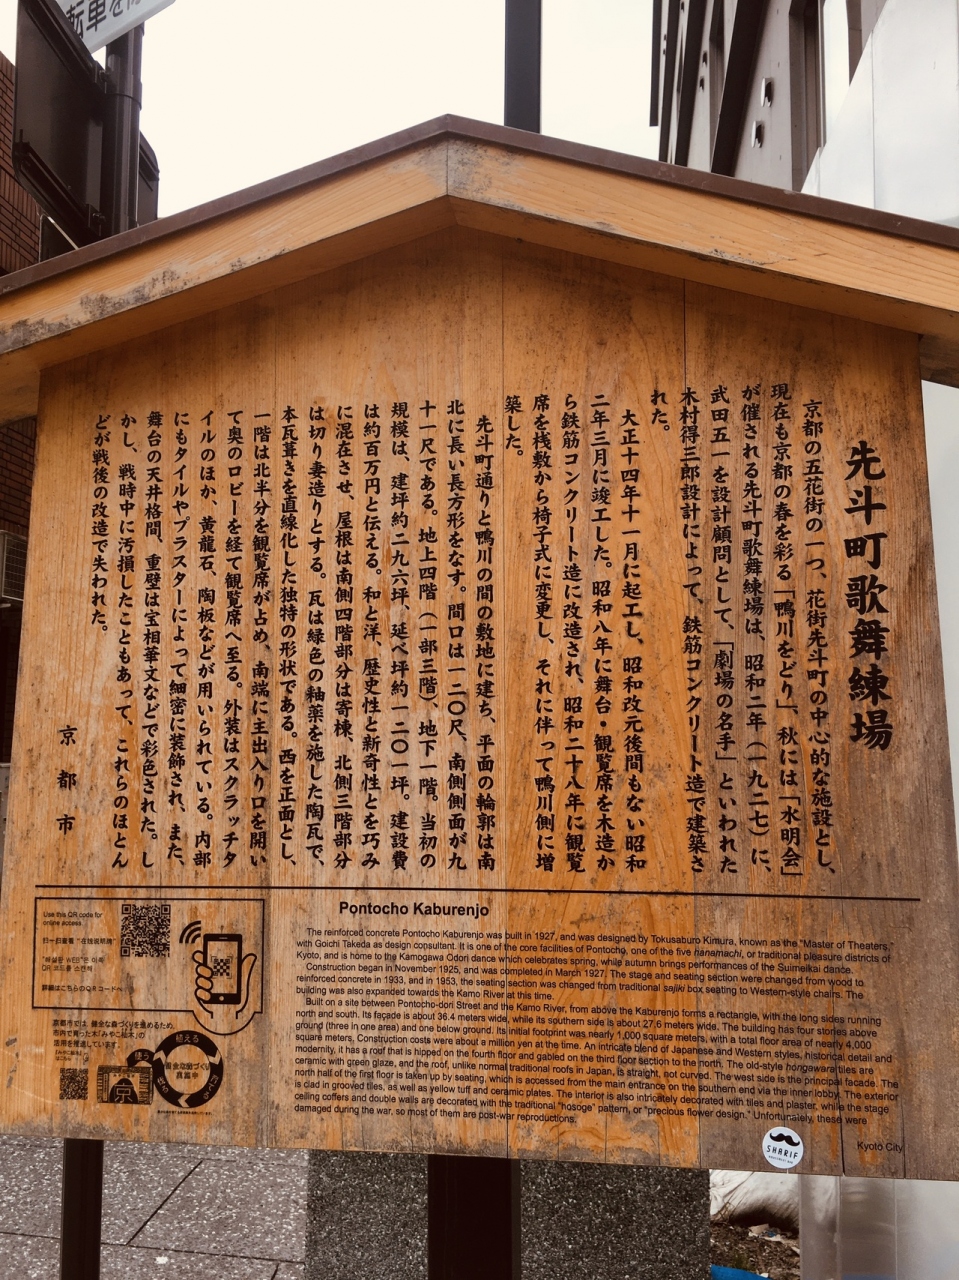 先斗町歌舞練場
京都の五花街の一つ、花街先斗町の中心的な施設とし、
現在も京都の春を彩る「鴨川をどり」、秋には「水明会」
が催される先斗町歌舞練場は、昭和二年(一九二七)に、
武田五一を設計顧問として、「劇場の名手」といわれた
木村得三郎設計によって、鉄筋コンクリート造で建築さ
れた。
大正十四年十一月に起工し、昭和改元後間もない昭和
二年三月に竣工した。昭和八年に舞台・観覧席を木造か
ら鉄筋コンクリート造に改造され、昭和二十八年に観覧
席を桟敷から椅子式に変更し、それに伴って鴨川側に増
築した。
先斗町通りと鴨川の間の敷地に建ち、平面の輪郭は南
北に長い長方形をなす。間口は一二〇尺、南側側面が九
十一尺である。地上四階(一部三階)、地下一階。当初の
規模は、建坪約二九六坪、延べ坪約一二〇一坪。建設費
は約百万円と伝える。和と洋、歴史性と新奇性とを巧み
に混在させ、屋根は南側四階部分は寄棟、北側三階部分
は切り妻造りとする。瓦は緑色の釉薬を施した陶瓦で、
本瓦葺きを直線化した独特の形状である。西を正面とし、
一階は北半分を観覧席が占め、南端に主出入り口を開い
て奥のロビーを経て観覧席へ至る。外装はスクラッチタ
イルのほか、黄龍石、陶板などが用いられている。内部
にもタイルやプラスターによって細密に装飾され、また、
舞台の天井格間、重壁は宝相華文などで彩色された。し
かし、戦時中に汚損したこともあって、これらのほとん
どが戦後の改造で失われた。
京都市
Pontocho Kaburenjo
The reinforced concrete Pontocho Kaburenjo was built in 1927, and was designed by Tokusaburo Kimura, known as the "Master of Theaters,"
with Goichi Takeda as design consultant. It is one of the core facilities of Pontocho, one of the five hanamachi, or traditional pleasure districts of
Kyoto, and is home to the Kamogawa Odori dance which celebrates spring, while autumn brings performances of the Suimeikai dance.
Construction began in November 1925, and was completed in March 1927. The stage and seating section were changed from wood to
reinforced concrete in 1933, and in 1953, the seating section was changed from traditional sajiki box seating to Western-style chairs. The
building was also expanded towards the Kamo River at this time.
Built on a site between Pontocho-dori Street and the Kamo River, from above the Kaburenjo forms a rectangle, with the long sides running
north and south. Its façade is about 36.4 meters wide, while its southern side is about 27.6 meters wide. The building has four stories above
ground (three in one area) and one below ground. Its initial footprint was nearly 1,000 square meters, with a total floor area of nearly 4,000
square meters. Construction costs were about a million yen at the time. An intricate blend of Japanese and Western styles, historical detail and
modernity, it has a roof that is hipped on the fourth floor and gabled on the third floor section to the north. The old-style hongawara tiles are
ceramic with green glaze, and the roof, unlike normal traditional roofs in Japan, is straight, not curved. The west side is the principal facade. The
north half of the first floor is taken up by seating, which is accessed from the main entrance on the southern end via the inner lobby. The exterior
is clad in grooved tiles, as well as yellow tuff and ceramic plates. The interior is also intricately decorated with tiles and plaster, while the stage
ceiling coffers and double walls are decorated with the traditional "hosoge" pattern, or "precious flower design." Unfortunately, these were
damaged during the war, so most of them are post-war reproductions.
Kyoto City
Use this QR code for
online access.
扫一扫查看 "在线说明牌"
"해설판 WEB"은 이쪽
QR 코드를 스캔해
詳細はこちらのQRコードへ
京都市では、健全な森づくりを進めるため、
市内で育った木「みやこ杣木」の
活用を推進しています。
植える
使う
京
健全な森づくり
真最中
SHARIF